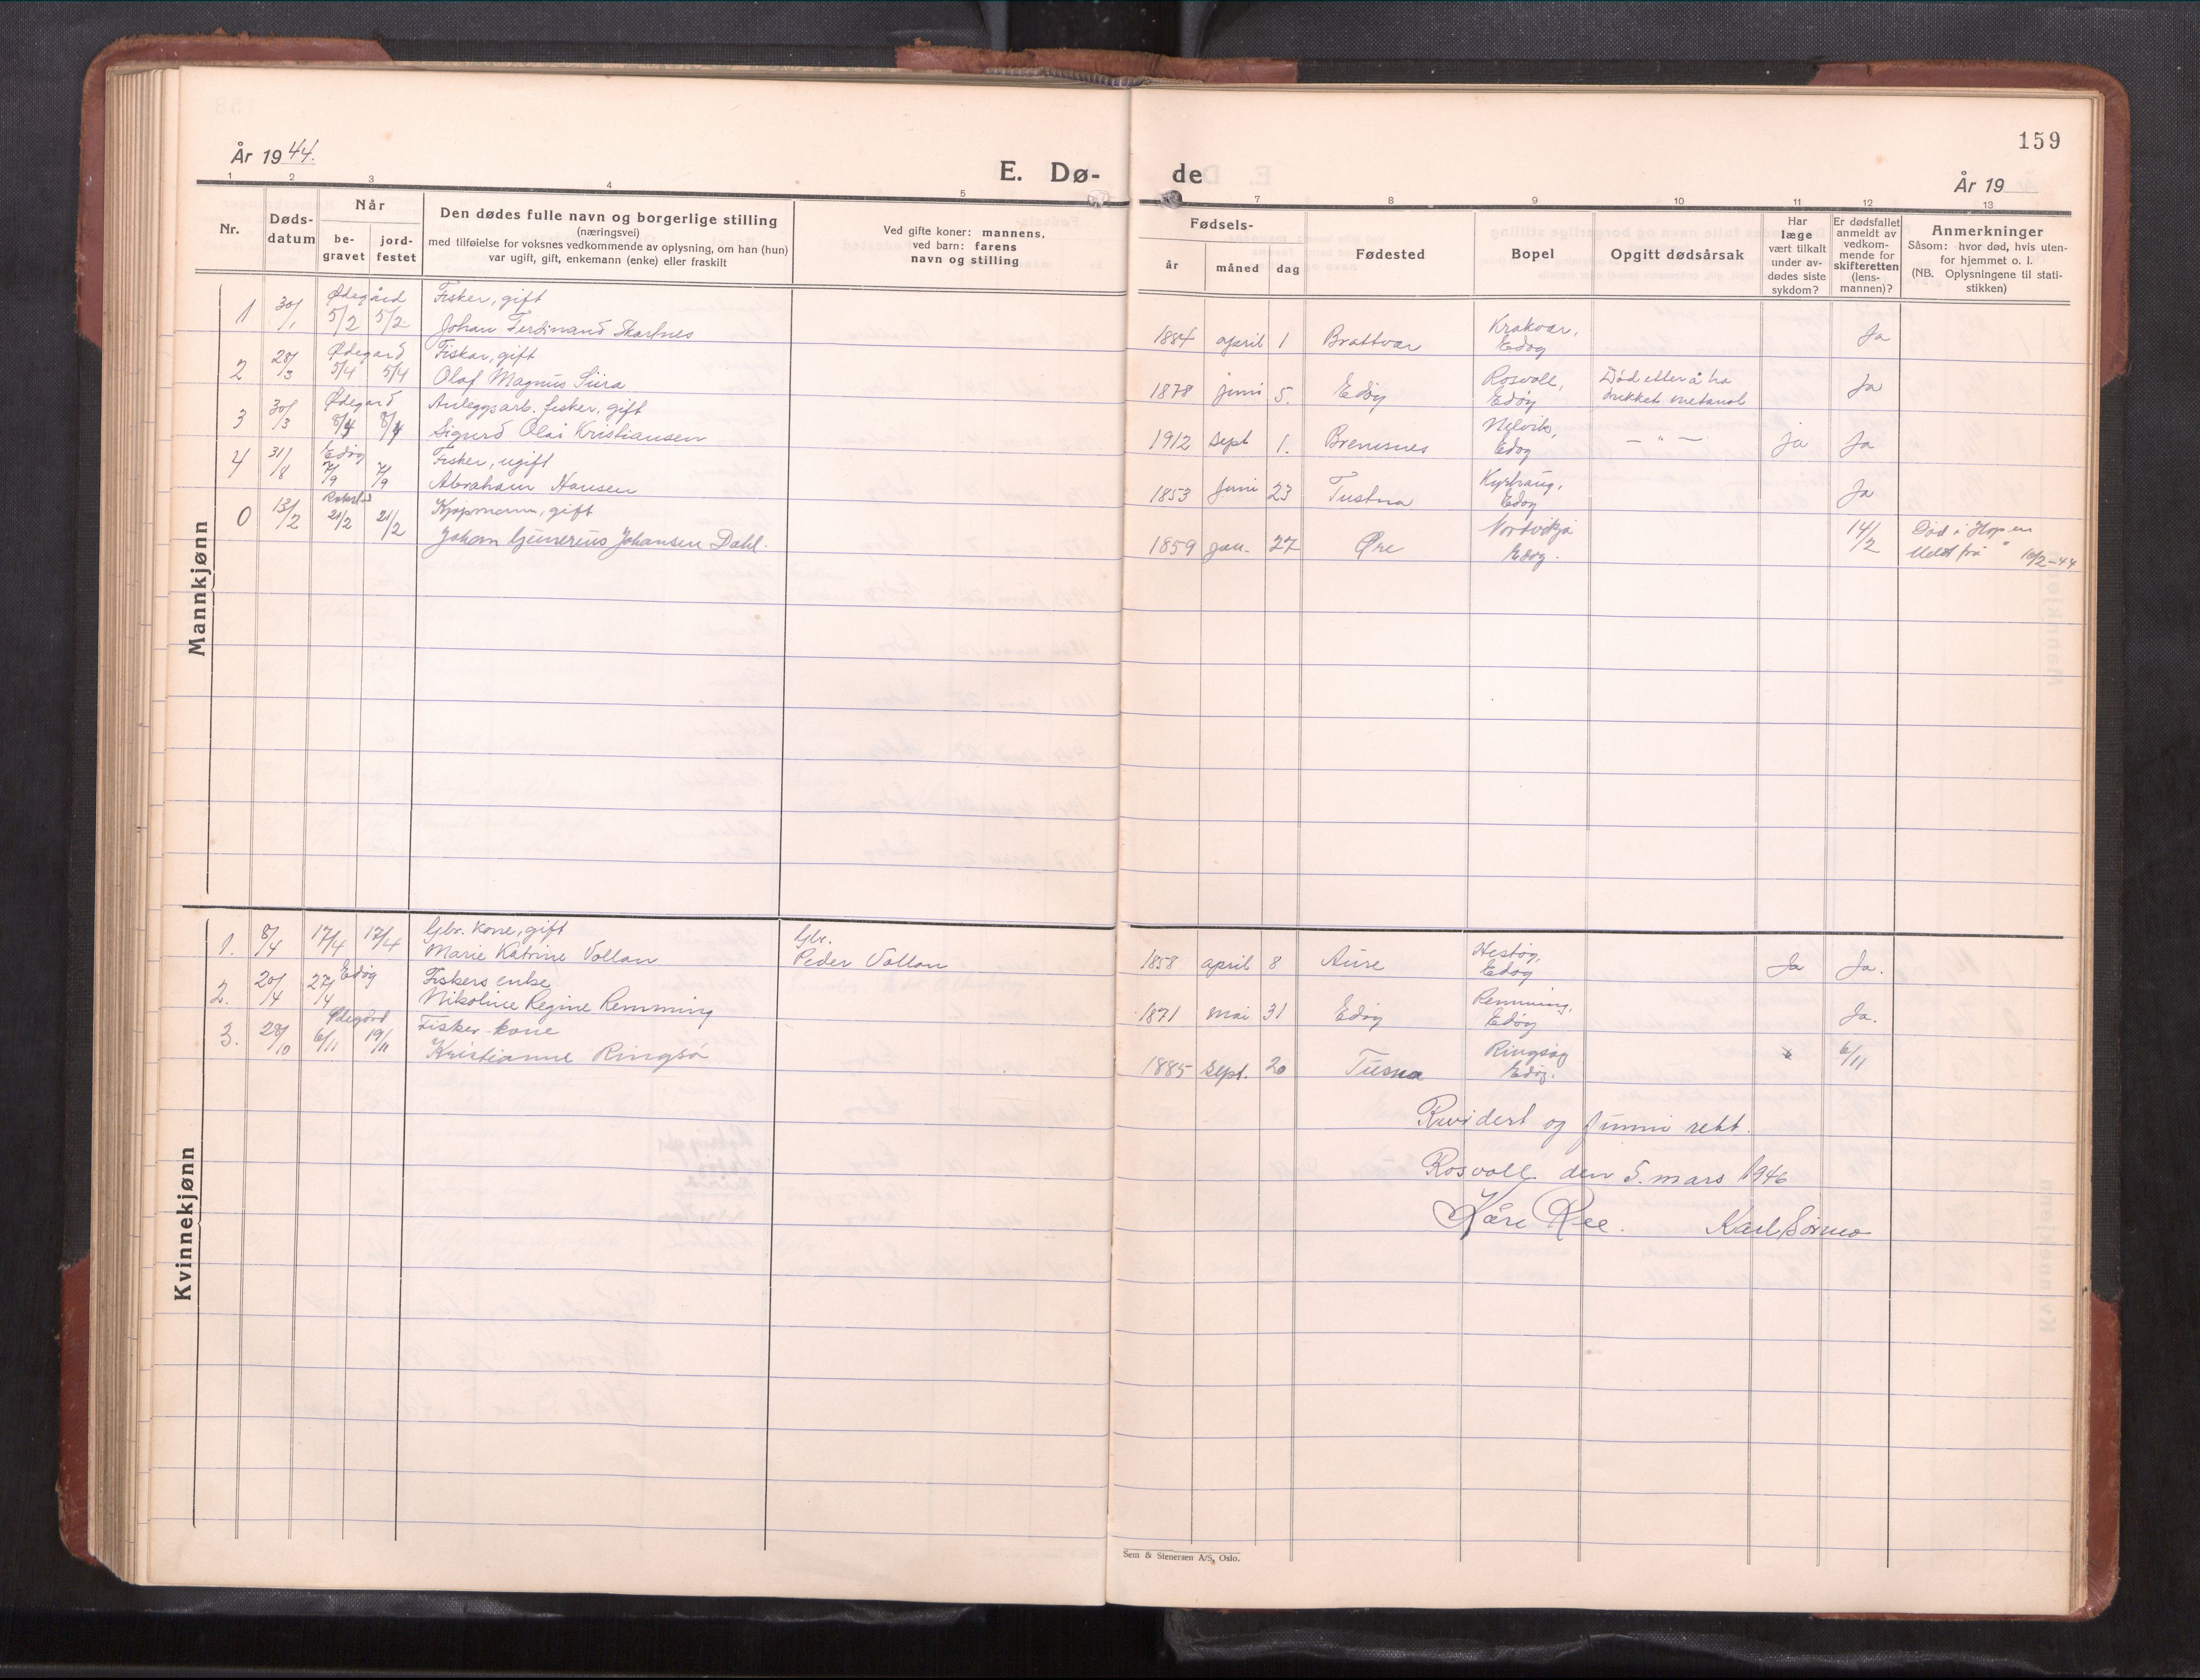 159
År 1944.
E. Dø-
de
År 19
1 2 3 4 5
7 8 9 10 11 12 13
Nr.
Døds-
datum
Når
be-
gravet
jord-
festet
Den dødes fulle navn og borgerlige stilling
(næringsvei)
med tilføielse for voksnes vedkommende av oplysning, om han (hun)
var ugift, gift, enkemann (enke) eller fraskilt
Ved gifte koner: mannens,
ved barn: farens
navn og stilling
Fødsels-
år
måned
dag
Fødested
Bopel
Opgitt dødsårsak
Har
læge
vært tilkalt
under av-
dødes siste
sykdom?
Er dødsfallet
anmeldt av
vedkom-
mende for
skifteretten
(lens-
mannen)?
Anmerkninger
Såsom: hvor død, hvis uten-
for hjemmet o. l.
(NB. Oplysningene til stati-
stikken)
Mannkjønn
Ødegård Fisker, gift Krakvær,
1 30/1 5/2 5/2 Johan Ferdinand Skarlnes 1884 april 1 Brattvær Edøy Ja
Ødegard Fiskar, gift Rosvoll, Død etter å ha
2 28/3 5/4 5/4 Olaf Magnus Siira 1878 juni 5. Edöy Edöy drukket metanol Ja
Ødegard Anleggsarb. fisker, gift Nelvik,
3 30/3 8/4 8/4 Sigurd Olai Kristiansen 1912 sept 1. Bremsnes Edøy — " — ja Ja
Edöy Fisker, ugift Kyrhaug,
4 31/8 7/9 7/9 Abraham Hansen 1853 juni 23 Tustna Edøy Ja
Kjøpmann, gift 14/2 Død i Hopen
0 13/2 21/2 21/2 Johan Johansen Dahl. 1859 jan. 27 Øre Edøy. Meldt fra " 16/2-44
Kvinnekjønn
Gbr. kone, gift Gbr. Hestøy,
1. 8/4 17/4 17/4 Marie Katrine Vollan Peder Vollan 1858 april 8 Aure Edøy Ja Ja.
Edøy Fiskers enke Remming,
2. 20/4 27/4 Nikoline Regine Remming 1871 mai 31 Edöy Edöy Ja.
Ødegård Fisker-kone Ringsøy
3. 28/10 6/11 19/11 Kristianne Ringsö 1885 sept. 20 Tusna Edöy. 6/11
Revidert og funni rett.
Rosvoll den 5. mars 1946
Kåre Ree. Karl Sörmo
Sem & Stenersen A/S, Oslo.